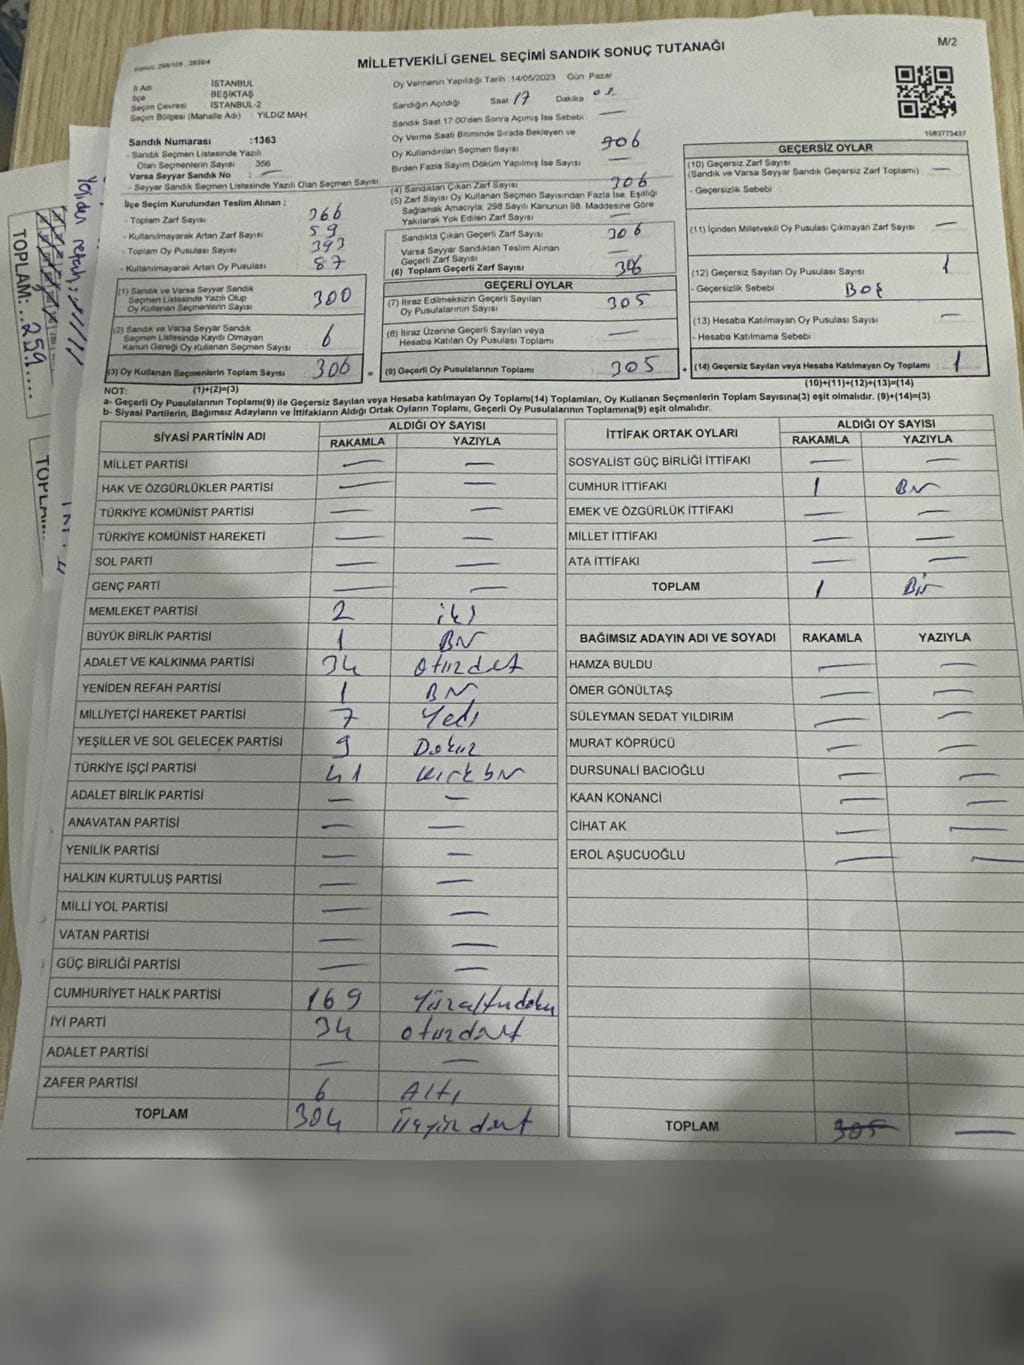 MİLLETVEKİLİ GENEL SEÇİMİ SANDIK SONUÇ TUTANAĞI
M/2
İl Adı İSTANBUL
İlçe BEŞİKTAŞ
Seçim Çevresi : İSTANBUL-2
Seçim Bölgesi (Mahalle Adı) : YILDIZ MAH.
Sandık Numarası :1363
- Sandık Seçmen Listesinde Yazılı
Olan Seçmenlerin Sayısı 356
Varsa Seyyar Sandık No : —
- Seyyar Sandık Seçmen Listesinde Yazılı Olan Seçmen Sayısı
İlçe Seçim Kurulundan Teslim Alınan :
- Toplam Zarf Sayısı 366
- Kullanılmayarak Artan Zarf Sayısı 59
- Toplam Oy Pusulası Sayısı 393
- Kullanılmayarak Artan Oy Pusulası 87
(1) Sandık ve Varsa Seyyar Sandık
Seçmen Listesinde Yazılı Olup
Oy Kullanan Seçmenlerin Sayısı 300
(2) Sandık ve Varsa Seyyar Sandık
Seçmen Listesinde Kayıtlı Olmayan
Kanun Gereği Oy Kullanan Seçmen Sayısı 6
(3) Oy Kullanan Seçmenlerin Toplam Sayısı 306 =
Oy Vermenin Yapıldığı Tarih :14/05/2023 Gün: Pazar
Sandığın Açıldığı Saat 17 Dakika
Sandık Saat 17:00'den Sonra Açılmış İse Sebebi —
Oy Verme Saati Bitiminde Sırada Bekleyen ve
Oy Kullandırılan Seçmen Sayısı 306
Birden Fazla Sayım Döküm Yapılmış İse Sayısı —
(4) Sandıktan Çıkan Zarf Sayısı 306
(5) Zarf Sayısı Oy Kullanan Seçmen Sayısından Fazla İse, Eşitliği
Sağlamak Amacıyla, 298 Sayılı Kanunun 98. Maddesine Göre
Yakılarak Yok Edilen Zarf Sayısı —
Sandıkta Çıkan Geçerli Zarf Sayısı 306
Varsa Seyyar Sandıktan Teslim Alınan
Geçerli Zarf Sayısı —
(6) Toplam Geçerli Zarf Sayısı 306
GEÇERLİ OYLAR
(7) İtiraz Edilmeksizin Geçerli Sayılan
Oy Pusulalarının Sayısı 305
(8) İtiraz Üzerine Geçerli Sayılan veya
Hesaba Katılan Oy Pusulası Toplamı —
(9) Geçerli Oy Pusulalarının Toplamı 305 +
1083773437
GEÇERSİZ OYLAR
(10) Geçersiz Zarf Sayısı
(Sandık ve Varsa Seyyar Sandık Geçersiz Zarf Toplamı) —
- Geçersizlik Sebebi
(11) İçinden Milletvekili Oy Pusulası Çıkmayan Zarf Sayısı —
(12) Geçersiz Sayılan Oy Pusulası Sayısı 1
- Geçersizlik Sebebi Boş
(13) Hesaba Katılmayan Oy Pusulası Sayısı —
- Hesaba Katılmama Sebebi
(14) Geçersiz Sayılan veya Hesaba Katılmayan Oy Toplamı 1
NOT: (1)+(2)=(3) (10)+(11)+(12)+(13)=(14)
a- Geçerli Oy Pusulalarının Toplamı(9) ile Geçersiz Sayılan veya Hesaba katılmayan Oy Toplamı(14) Toplamları, Oy Kullanan Seçmenlerin Toplam Sayısına(3) eşit olmalıdır. (9)+(14)=(3)
b- Siyasi Partilerin, Bağımsız Adayların ve İttifakların Aldığı Ortak Oyların Toplamı, Geçerli Oy Pusulalarının Toplamına(9) eşit olmalıdır.
SİYASİ PARTİNİN ADI ALDIĞI OY SAYISI
RAKAMLA YAZIYLA
MİLLET PARTİSİ — —
HAK VE ÖZGÜRLÜKLER PARTİSİ — —
TÜRKİYE KOMÜNİST PARTİSİ — —
TÜRKİYE KOMÜNİST HAREKETİ — —
SOL PARTİ — —
GENÇ PARTİ — —
MEMLEKET PARTİSİ 2 iki
BÜYÜK BİRLİK PARTİSİ 1 Bir
ADALET VE KALKINMA PARTİSİ 34 otuzdört
YENİDEN REFAH PARTİSİ 1 Bir
MİLLİYETÇİ HAREKET PARTİSİ 7 Yedi
YEŞİLLER VE SOL GELECEK PARTİSİ 9 Dokuz
TÜRKİYE İŞÇİ PARTİSİ 41 kırkbir
ADALET BİRLİK PARTİSİ — —
ANAVATAN PARTİSİ — —
YENİLİK PARTİSİ — —
HALKIN KURTULUŞ PARTİSİ — —
MİLLİ YOL PARTİSİ — —
VATAN PARTİSİ — —
GÜÇ BİRLİĞİ PARTİSİ — —
CUMHURİYET HALK PARTİSİ 169
İYİ PARTİ 34 otuzdört
ADALET PARTİSİ — —
ZAFER PARTİSİ 6 Altı
TOPLAM 304 üçyüz dört
İTTİFAK ORTAK OYLARI ALDIĞI OY SAYISI
RAKAMLA YAZIYLA
SOSYALİST GÜÇ BİRLİĞİ İTTİFAKI — —
CUMHUR İTTİFAKI 1 Bir
EMEK VE ÖZGÜRLÜK İTTİFAKI — —
MİLLET İTTİFAKI — —
ATA İTTİFAKI — —
TOPLAM 1 Bir
BAĞIMSIZ ADAYIN ADI VE SOYADI RAKAMLA YAZIYLA
HAMZA BULDU — —
ÖMER GÖNÜLTAŞ — —
SÜLEYMAN SEDAT YILDIRIM — —
MURAT KÖPRÜCÜ — —
DURSUNALİ BACIOĞLU — —
KAAN KONANCİ — —
CİHAT AK — —
EROL AŞUCUOĞLU — —
TOPLAM 305 —
Yeniden refah:
TOPLAM:...259....